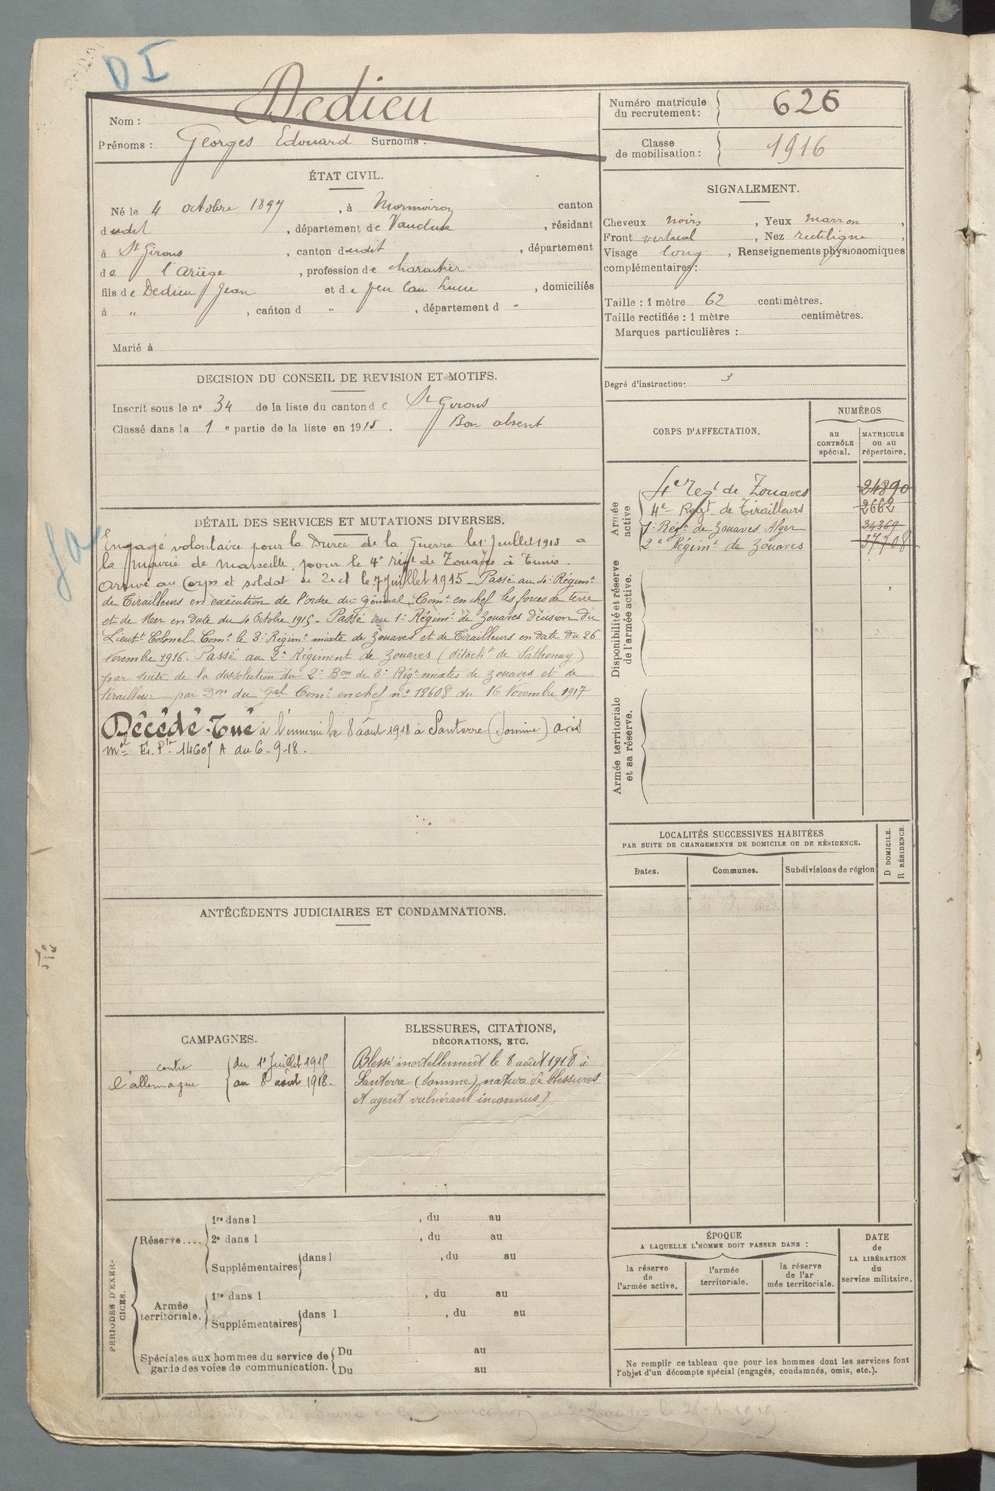 D I
Nom : Dedieu
Prénoms : Georges Edouard Surnoms :
Numéro matricule
du recrutement : 626
Classe
de mobilisation : 1916
ÉTAT CIVIL.
Né le 4 octobre 1897, à Mormoiron canton
dudit, département de Vaucluse, résidant
à St Girons, canton dudit, département
de l'Ariège, profession de charcutier
fils de Dedieu Jean et de feu Lucie, domiciliés
à " , canton d " , département d "
Marié à
SIGNALEMENT.
Cheveux noirs, Yeux marron,
Front vertical, Nez rectiligne,
Visage long, Renseignements physionomiques
complémentaires :
Taille : 1 mètre 62 centimètres.
Taille rectifiée : 1 mètre centimètres.
Marques particulières :
Degré d'instruction : 3
DECISION DU CONSEIL DE REVISION ET MOTIFS.
Inscrit sous le n° 34 de la liste du canton de St Girons
Classé dans la 1 e partie de la liste en 1915. Bon absent
CORPS D'AFFECTATION.
NUMÉROS
au
CONTRÔLE
spécial.
MATRICULE
ou au
répertoire.
Armée
active
4e Regt de Zouaves 24890
4e Regt de Tirailleurs 2662
1er Régt de Zouaves Alger 34369
2e Régimt de Zouaves 37708
Disponibilité et réserve
de l'armée active.
Armée territoriale
et sa réserve.
DÉTAIL DES SERVICES ET MUTATIONS DIVERSES.
Engagé volontaire pour la Durée de la Guerre le 1er Juillet 1915 a
la mairie de Marseille pour le 4e régt de Zouaves à Tunis.
Arrivé au Corps et soldat de 2e cl le 7 juillet 1915 - Passé au 4e Régimt
de Tirailleurs en exécution de l'ordre du général Comt en chef les forces de terre
et de Mer en date du 4 Octobre 1915 - Passé au 1er Régimt de Zouaves décision du
Lieutt Colonel Comt le 3e Régimt mixte de Zouaves et de Tirailleurs en date du 26
Novembre 1916. Passé au 2e Régiment de Zouaves (détacht de Sathonay)
par suite de la dissolution du 2e Bon de 3e Régt mixtes de zouaves et de
tirailleur par Don du Gal Comt en chef n° 18608 du 16 Novembre 1917
Décédé - Tué à l'ennemi le 8 août 1918 à Santerre (Somme) avis
1460 A du 6-9-18.
LOCALITÉS SUCCESSIVES HABITÉES
PAR SUITE DE CHANGEMENTS DE DOMICILE OU DE RÉSIDENCE.
Dates.
Communes.
Subdivisions de région
D DOMICILE.
R RÉSIDENCE.
ANTÉCÉDENTS JUDICIAIRES ET CONDAMNATIONS.
CAMPAGNES.
contre
l'allemagne
du 1er Juillet 1915
au 8 août 1918.
BLESSURES, CITATIONS,
DÉCORATIONS, ETC.
Blessé mortellement le 8 août 1918 à
Santerre (Somme) nature de blessures
et agent vulnérant inconnus)
PÉRIODES D'EXER-
CICES.
Réserve....
1re dans l , du au
2e dans l , du au
Supplémentaires dans l , du au
Armée
territoriale.
1re dans l , du au
Supplémentaires dans l , du au
Spéciales aux hommes du service de
garde des voies de communication.
Du au
Du au
ÉPOQUE
A LAQUELLE L'HOMME DOIT PASSER DANS :
la réserve
de
l'armée active.
l'armée
territoriale.
la réserve
de l'ar
mée territoriale.
DATE
de
LA LIBÉRATION
du
service militaire.
Ne remplir ce tableau que pour les hommes dont les services font
l'objet d'un décompte spécial (engagés, condamnés, omis, etc.).